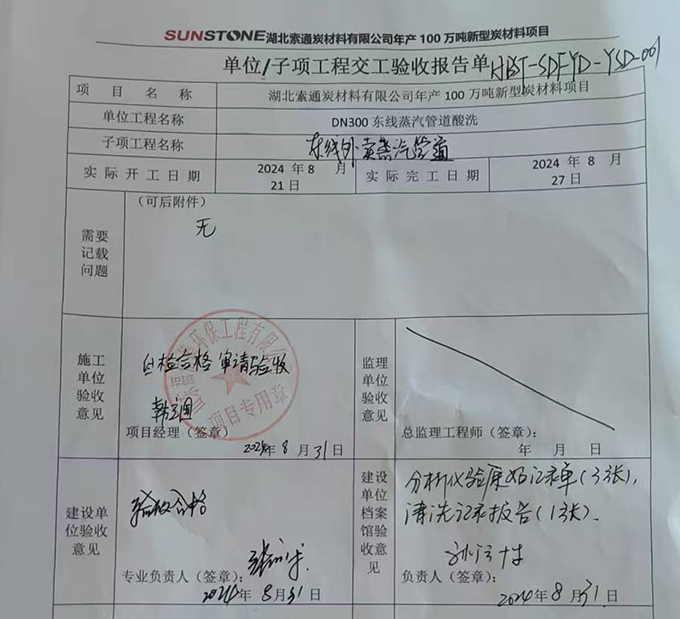 SUNSTONE湖北索通炭材料有限公司年产 100 万吨新型炭材料项目
单位/子项工程交工验收报告单HBST-SDFYD-YSD-001
项目名称 湖北索通炭材料有限公司年产 100 万吨新型炭材料项目
单位工程名称 DN300 东线蒸汽管道酸洗
子项工程名称 东线外卖蒸汽管道
实际开工日期 2024 年 8 月 21 日 实际完工日期 2024 年 8 月 27 日
需要记载问题
(可后附件)
无
施工单位验收意见
自检合格 申请验收
环保工程有限公司
项目专用章
项目经理(签章)
2024 年 8 月 31 日
监理单位验收意见
总监理工程师(签章):
年 月 日
建设单位验收意见
验收合格
专业负责人(签章):
2024年 8 月 31 日
建设单位档案馆验收意见
分析化验原始记录单(33张),
清洗记录报告(13张).
负责人(签章):
2024 年 8 月 31 日